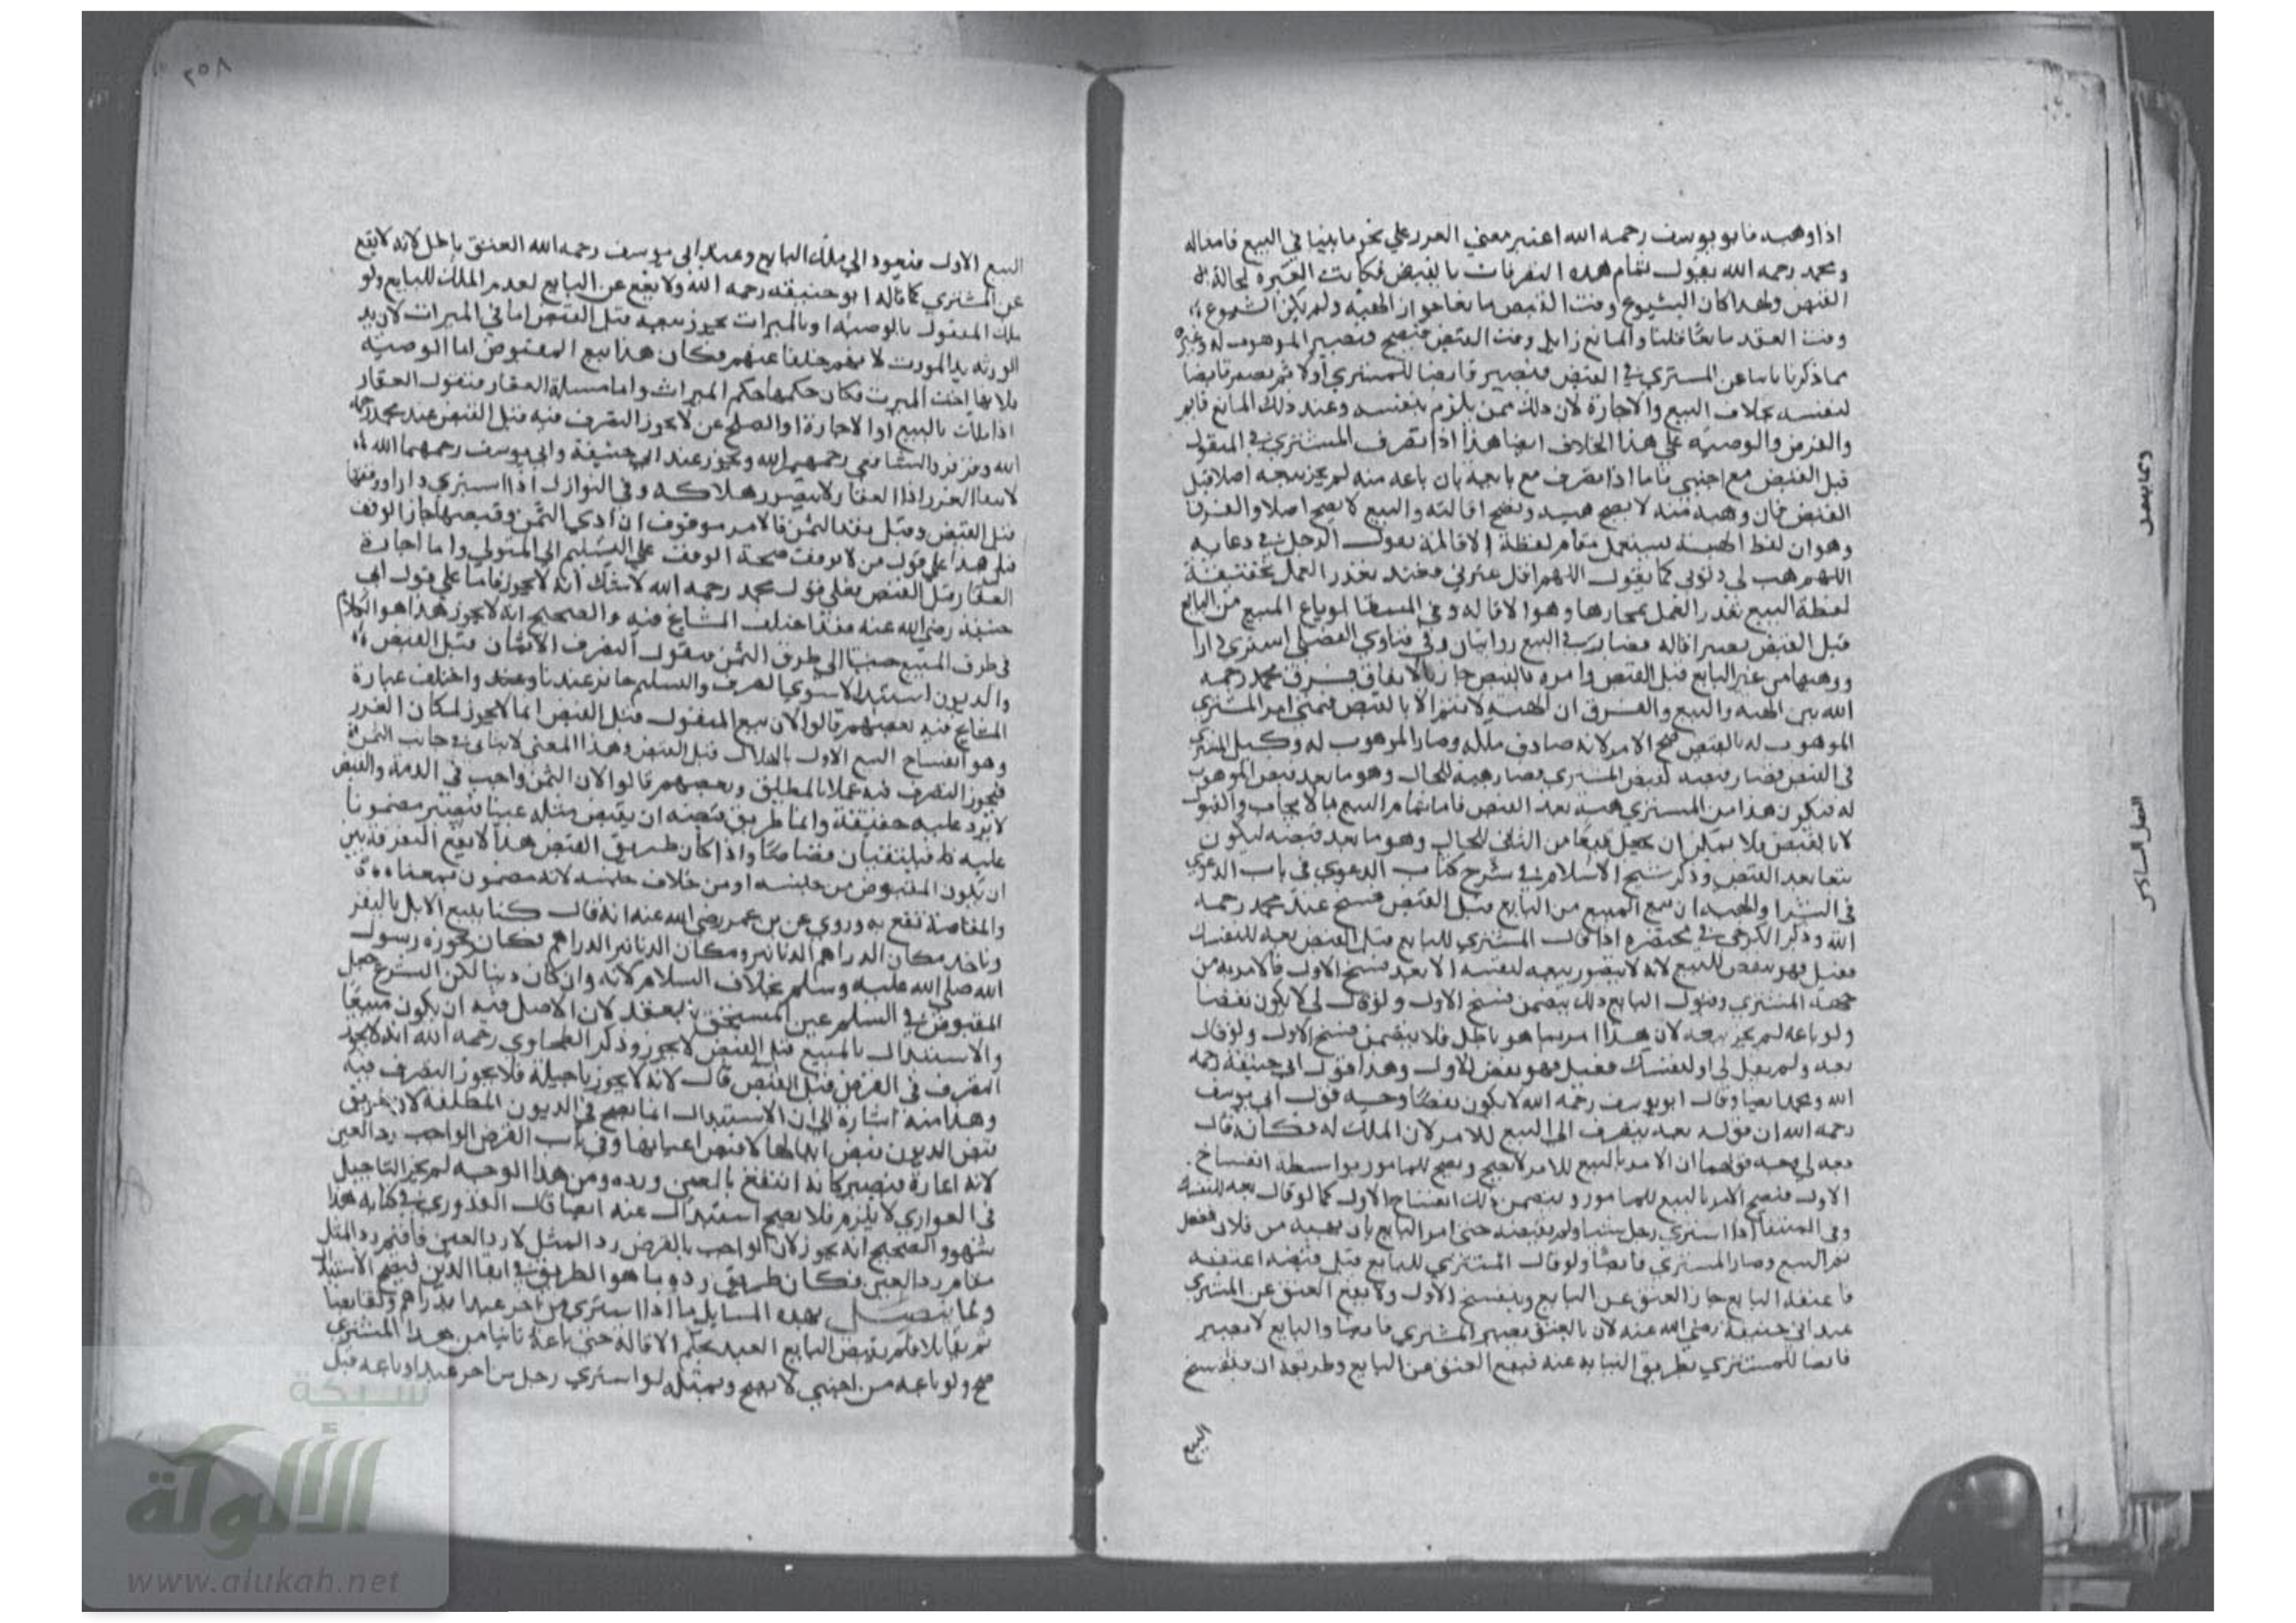 اذا وهبه فابو يوسف رحمه الله اعتبر معني الغرر علي نحو ما بينا في البيع فاما
ومحمد رحمه الله يقول تمام هذه التصرفات بالقبض فكانت العبرة لحالة
القبض ولهذا كان الشيوع وقت القبض مانعا جواز الهبة ولم يكن الشيوع
وقت العقد مانعا قلنا والمانع زايل وقت القبض فيصح فيصير الموهوب له وغيره
مما ذكرنا نايبا عن المستري في القبض فيصير قابضا للمشتري اولا ثم يصير قابضا
لنفسه بخلاف البيع والاجارة لان ذلك ممن يلزم بنفسه وعند ذلك المانع قايم
والقرض والوصية علي هذا الخلاف ايضا هذا اذا تصرف المشتري في المنقول
قبل القبض مع اجنبي فاما اذا تصرف مع بايعه بان باعه منه لم يجز بيعه اصلا قبل
القبض فان وهبه منه لا يصح هبته وتصح اقالته والبيع لا يصح اصلا والفرق
وهو ان لفظ الهبة يستعمل مقام لفظة الاقالة يقول الرجل في دعايه
اللهم هب لي ذنوبي كما يقول اللهم اقل عثرتي فعند تعذر العمل بحقيقة
لفظة البيع تعذر العمل بمجازها وهو الاقالة وفي المبسط لو باع المبيع من البايع
قبل القبض يصير اقالة فصار في البيع روايتان وفي فتاوي الفضلي اشتري دارا
ووهبها من غير البايع قبل القبض وامره بالقبض جاز بالاتفاق فرق محمد رحمه
الله بين الهبة والبيع والفرق ان الهبة لا تتم الا بالقبض فمتي امر المشتري
الموهوب له بالقبض صح الامر لانه صادف ملكه وصار الموهوب له وكيل المشتري
في القبض فصار قبضه كقبض المشتري فصار هبة للحال وهو ما بعد قبض الموهوب
له فيكون هذا من المستري هبة بعد القبض فاما تمام البيع بالايجاب والقبول
لا بالقبض فلا يمكن ان يجعل مبيعا من الثاني للحال وهو ما بعد قبضه ليكون
بيعا بعد القبض وذكر شيخ الاسلام في شرح كتاب الدعوي في باب الدعوي
في الشرا والهبة ان بيع المبيع من البايع قبل القبض فسخ عند محمد رحمه
الله وذكر الكرخي في مختصره اذا قال المشتري للبايع قبل القبض بعه لنفسك
فقبل فهو نقض للبيع لانه لا يتصور بيعه لنفسه الا بعد فسخ الاول فالامر به من
جهة المشتري وقبول البايع ذلك يتضمن فسخ الاول ولو قال لي لا يكون نقضا
ولو باعه لم يجز بيعه لان هذا امر بما هو باطل فلا يتضمن فسخ الاول ولو قال
بعه ولم يقل لي او لنفسك فقبل فهو نقض للاول وهذا قول ابي حنيفة رحمه
الله ومحمد ايضا وقال ابو يوسف رحمه الله لا يكون نقضا وجه قول ابي يوسف
رحمه الله ان قوله بعه ينصرف الي البيع للامر لان الملك له فكانه قال
بعه لي وجه قولهما ان الامر بالبيع للامر لا يصح ويصح للمامور بواسطة انفساخ
الاول فيصح الامر بالبيع للمامور ويتضمن ذلك انفساخ الاول كما لو قال بعه لنفسك
وفي المنتقا اذا اشتري رجل شيا ولم يقبضه حتي امر البايع بان يهبه من فلان ففعل
تم البيع وصار المشتري قابضا ولو قال المشتري للبايع قبل قبضه اعتقه
فاعتقه البايع جاز العتق عن البايع وينفسخ الاول ولا يقع العتق عن المشتري
عند ابي حنيفة رضي الله عنه لان بالعتق يصير المشتري قابضا والبايع لا يصير
قابضا للمشتري بطريق النيابة عنه فيقع العتق عن البايع وطريقه ان ينفسخ
البيع
٢٥٨
البيع الاول فيعود الي ملك البايع وعند ابي يوسف رحمه الله العتق باطل لانه لا يقع
عن المشتري كما قاله ابو حنيفة رحمه الله ولا يقع عن البايع لعدم الملك للبايع ولو
ملك المنقول بالوصية او بالميراث يجوز بيعه قبل القبض اما في الميراث لان يد
الورثة يد المورث لانهم خلفا عنهم فكان هذا بيع المقبوض اما الوصية
فلانها اخت الميرث فكان حكمها حكم الميراث واما مسيلة العقار فنقول العقار
اذا ملك بالبيع او الاجارة او الصلح عن لا يجوز التصرف فيه قبل القبض عند محمد رحمه
الله وزفر والشافعي رحمهم الله ويجوز عند ابي حنيفة وابي يوسف رحمهما الله
لانتفا الغرر اذا العقار لا يتصور هلاكه وفي النوازل اذا اشتري دارا ووقفها
قبل القبض وقبل نقد الثمن فالامر موقوف ان ادي الثمن وقبضها جاز الوقف
قيل هذا علي قول من لا يوقف صحة الوقف علي التسليم الي المتولي واما اجارة
العقار قبل القبض فعلي قول محمد رحمه الله لا شك انه لا يجوز فاما علي قول ابي
حنيفة رضي الله عنه فقد اختلف المشايخ فيه والصحيح انه لا يجوز هذا هو الكلام
في طرف المبيع جينا الي طرف الثمن فنقول التصرف الاثمان قبل القبض
والديون استبدالا سوي الصرف والسلم جايز عندنا وعند واختلف عبارة
المشايخ فيه بعضهم قالوا لان بيع المنقول قبل القبض انما لا يجوز لمكان الغرر
وهو انفساخ البيع الاول بالهلاك قبل القبض وهذا المعني لا يتاتي في جانب الثمن
فيجوز التصرف فيه عملا بالمطلق وبعضهم قالوا لان الثمن واجب في الذمة والقبض
لا يرد عليه حقيقة وانما طريق قبضه ان يقبض مثله عينا فيصير مضمونا
عليه فيلتقيان قصاصا واذا كان طريق القبض هذا لا يقع التفرقة بين
ان يكون المقبوض من جنسه او من خلاف جنسه لانه مضمون بمعناه
والمقاصة تقع به وروي عن بن عمر رضي الله عنه انه قال كنا نبيع الابل بالبقيع
وناخذ مكان الدراهم الدنانير ومكان الدنانير الدراهم فكان يجوزه رسول
الله صلي الله عليه وسلم بخلاف السلام لانه وان كان دينا لكن الشرع جعل
المقبوض في السلم عين المستحق بعقد لان الاصل فيه ان يكون مبيعا
والاستبدال بالمبيع قبل القبض لا يجوز وذكر الطحاوي رحمه الله انه لا يجوز
التصرف في القرض قبل القبض قال لانه لا يجوز تاجيله فلا يجوز التصرف فيه
وهذا منه اشارة الي ان الاستبدال انما يصح في الديون المطلقة لان طريق
قبض الديون قبض ابدالها لا قبض اعيانها وفي باب القرض الواجب رد العين
لانه اعارة فيصير كانه انتفع بالعين ورده ومن هذا الوجه لم يجز التاجيل
في العواري لا يلزم فلا يصح استبدال عنه ايضا قال القدوري في كتابه هذا
سهو والصحيح انه يجوز لان الواجب بالقرض رد المثل لا رد العين فاقيم رد المثل
مقام رد العين فكان طريق رده ما هو الطريق في ايفا الدين فيصح الاستبدال
ومما يتصل بهذه المسايل ما اذا اشتري من اخر عبدا بدراهم وتقابضا
ثم تقايلا فلم يقبض البايع العبد بحكم الاقالة حتي باعه ثانيا من هذا المشتري
صح ولو باعه من اجنبي لا يصح وبمثله لو اشتري رجل من اخر عبدا وباعه قبل
شبكة
الألوكة
www.alukah.net